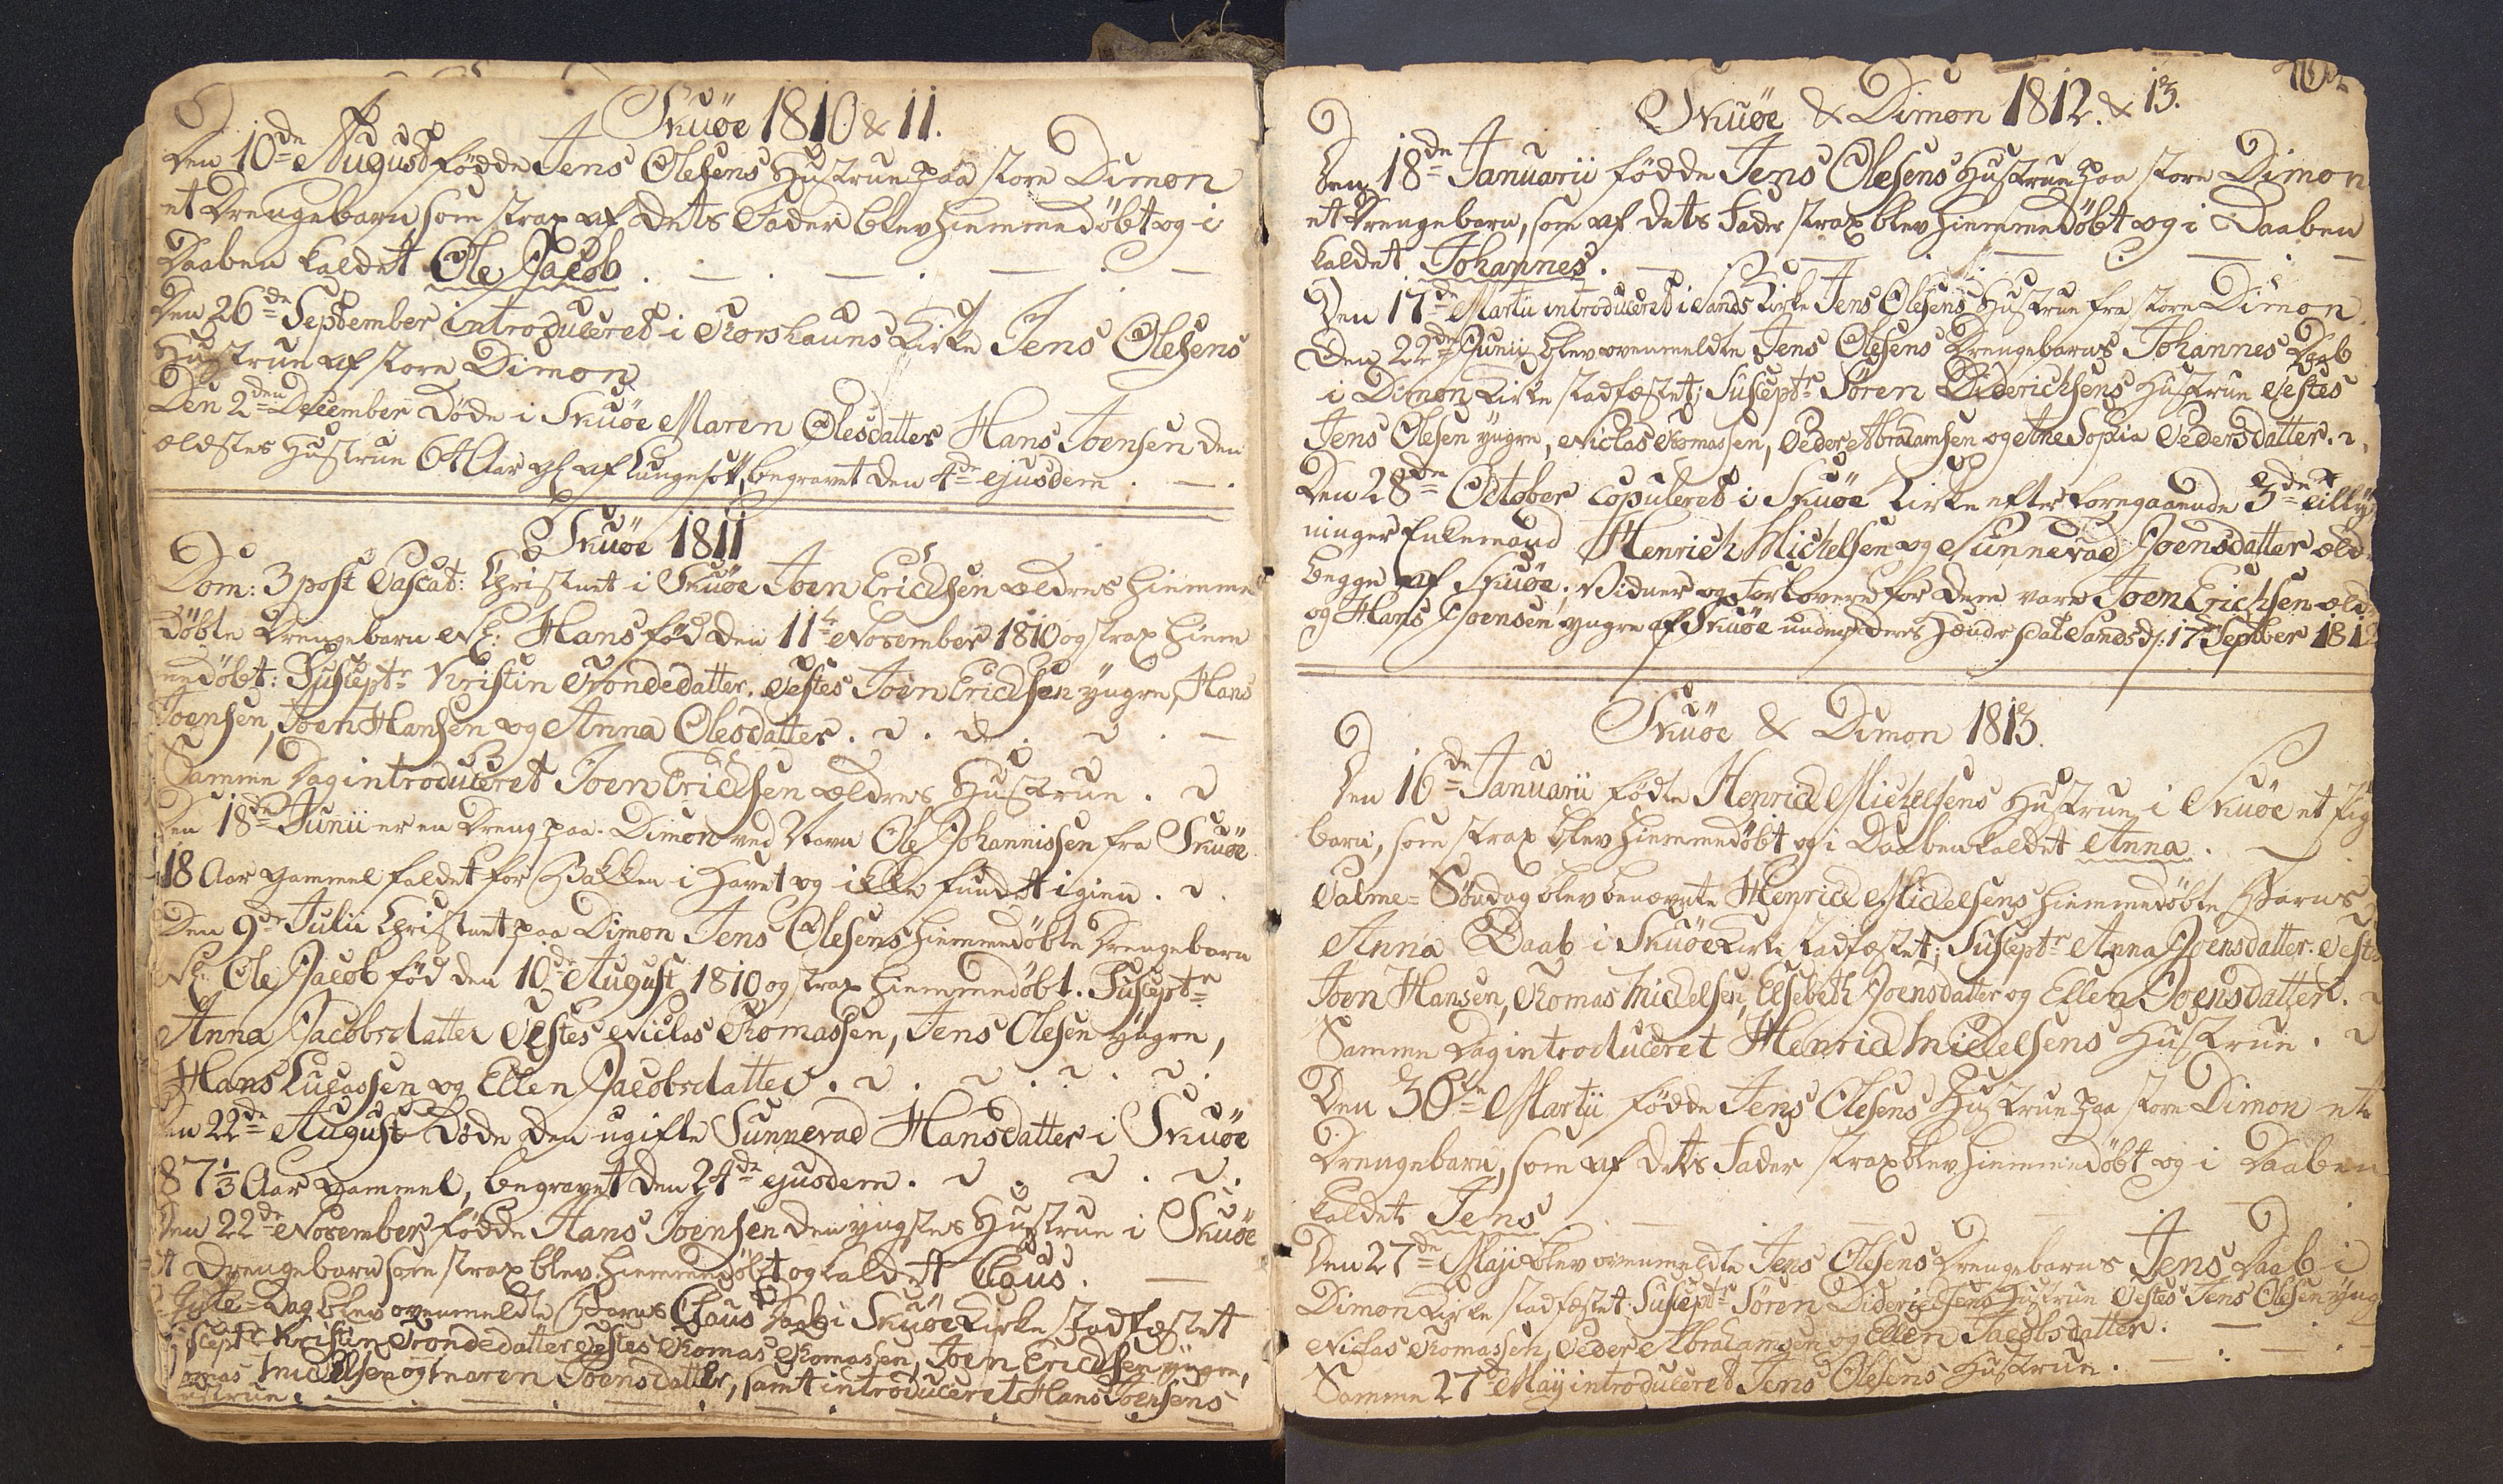 Skuöe 1810 & 11.
Den 10de August fødde Jens Olesens Hustrue paa store Dimon
et Drengebarn som strax af dets Fader blev hiemmedøbt og i
Daaben kaldet Ole Jacob.
Den 26de September introduceret i Thorshauns Kirke Jens Olesens
Hustrue af store Dimon
Den 2den December døde i Skuöe Maren Olesdatter Hans Joensen den
ældstes Hustrue 64 Aar gl af Lungesot, begravet den 4de ejusdem.
Skuöe 1811
Dom: 3 post Pascat: Christnet i Skuöe Joen Erichsen ældres hiemme
døbte Drengebarn Nl: Hans fød den 11te November 1810 og strax hiem
medøbt: Susceptr Kristin Trondedatter. Testes Joen Erichsen yngre, Hans
Joensen, Joen Hansen og Anna Olesdatter.
Samme Dag introduceret Joen Erichsen ældres Hustrue.
Den 18de Junii er en Dreng paa Dimon ved Navn Ole Johannissen fra Skuöe
18 Aar gammel faldet for Bakken i Havet og ikke fundet igien.
Den 9de Julii Christnet paa Dimon Jens Olesens hiemmedøbte Drengebarn
Nl: Ole Jacob fød den 10de August 1810 og strax hiemmedøbt. Susceptr
Anna Jacobsdatter Testes Niclas Thomassen, Jens Olesen yngre,
Hans Lucassen og Ellen Jacobsdatter.
Den 22de August døde den ugifte Sunnevae Hansdatter i Skuöe
87 1/3 Aar gammel, begravet den 24de ejusdem.
Den 22de November fødde Hans Joensen den yngstes Hustrue i Skuöe
et Drengebarn som strax blev hiemmedøbt og kaldet Claus.
Jule-Dag blev ovenmeldte Barns Claus Daab i Skuöe Kirke stadfæstet
Susceptr Kristin Trondedatter Testes Thomas Thomassen, Joen Erichsen yngre,
Thomas Michelsen og Maren Joensdatter, samt introduceret Hans Joensens
Hustrue.
Skuöe & Dimon 1812. & 13.
Den 18de Januarii fødde Jens Olesens Hustrue paa store Dimon
et Drengebarn, som af dets Fader strax blev hiemmedøbt og i Daaben
kaldet Johannes.
Den 17de Martii introduceret i Sands Kirke Jens Olesens Hustrue fra store Dimon.
Den 22de Junii blev ovenmeldte Jens Olesens Drengebarns Johannes Daab
i Dimon Kirke stadfæstet; Susceptr Søren Diderichsens Hustrue Testes
Jens Olesen yngre, Niclas Thomassen, Peder Abrahamsen og Ane Sophia Pedersdatter.
Den 28de October copuleret i Skuöe Kirke efter foregaaende 3de Tilly
ninger Enkemand Henrich Michelsen og Sunnevae Joensdatter æld
begge af Skuöe; Vidner og Forlovere for dem vare Joen Erichsen æld
og Hans Joensen yngre af Skuöe under deres Hænder Dat Sands d: 17 September 1812
Skuöe & Dimon 1813.
Den 16de Januarii fødte Henrich Michelsens Hustrue i Skuöe et Pig
barn, som strax blev hiemmedøbt og i Daaben kaldet Anna.
Palme-Søndag blev benævnte Henrich Michelsens hiemmedøbte Barns
Anna Daab i Skuöe Kirke stadfæstet; Susceptr Anna Joensdatter. Testes
Joen Hansen, Thomas Michelsen, Elsebeth Joensdatter og Ellen Joensdatter.
Samme Dag introduceret Henrich Michelsens Hustrue.
Den 30te Martii fødde Jens Olesens Hustrue paa store Dimon et
Drengebarn, som af dets Fader strax blev hiemmedøbt og i Daaben
kaldet Jens
Den 27de Maji blev ovenmeldte Jens Olesens Drengebarns Jens Daab i
Dimon Kirke stadfæstet. Susceptr Søren Diderichsens Hustrue Testes Jens Olesen yng
Niclas Thomassen, Peder Abrahamsen og Ellen Jacobsdatter.
Samme 27de Maij introduceret Jens Olesens Hustrue.